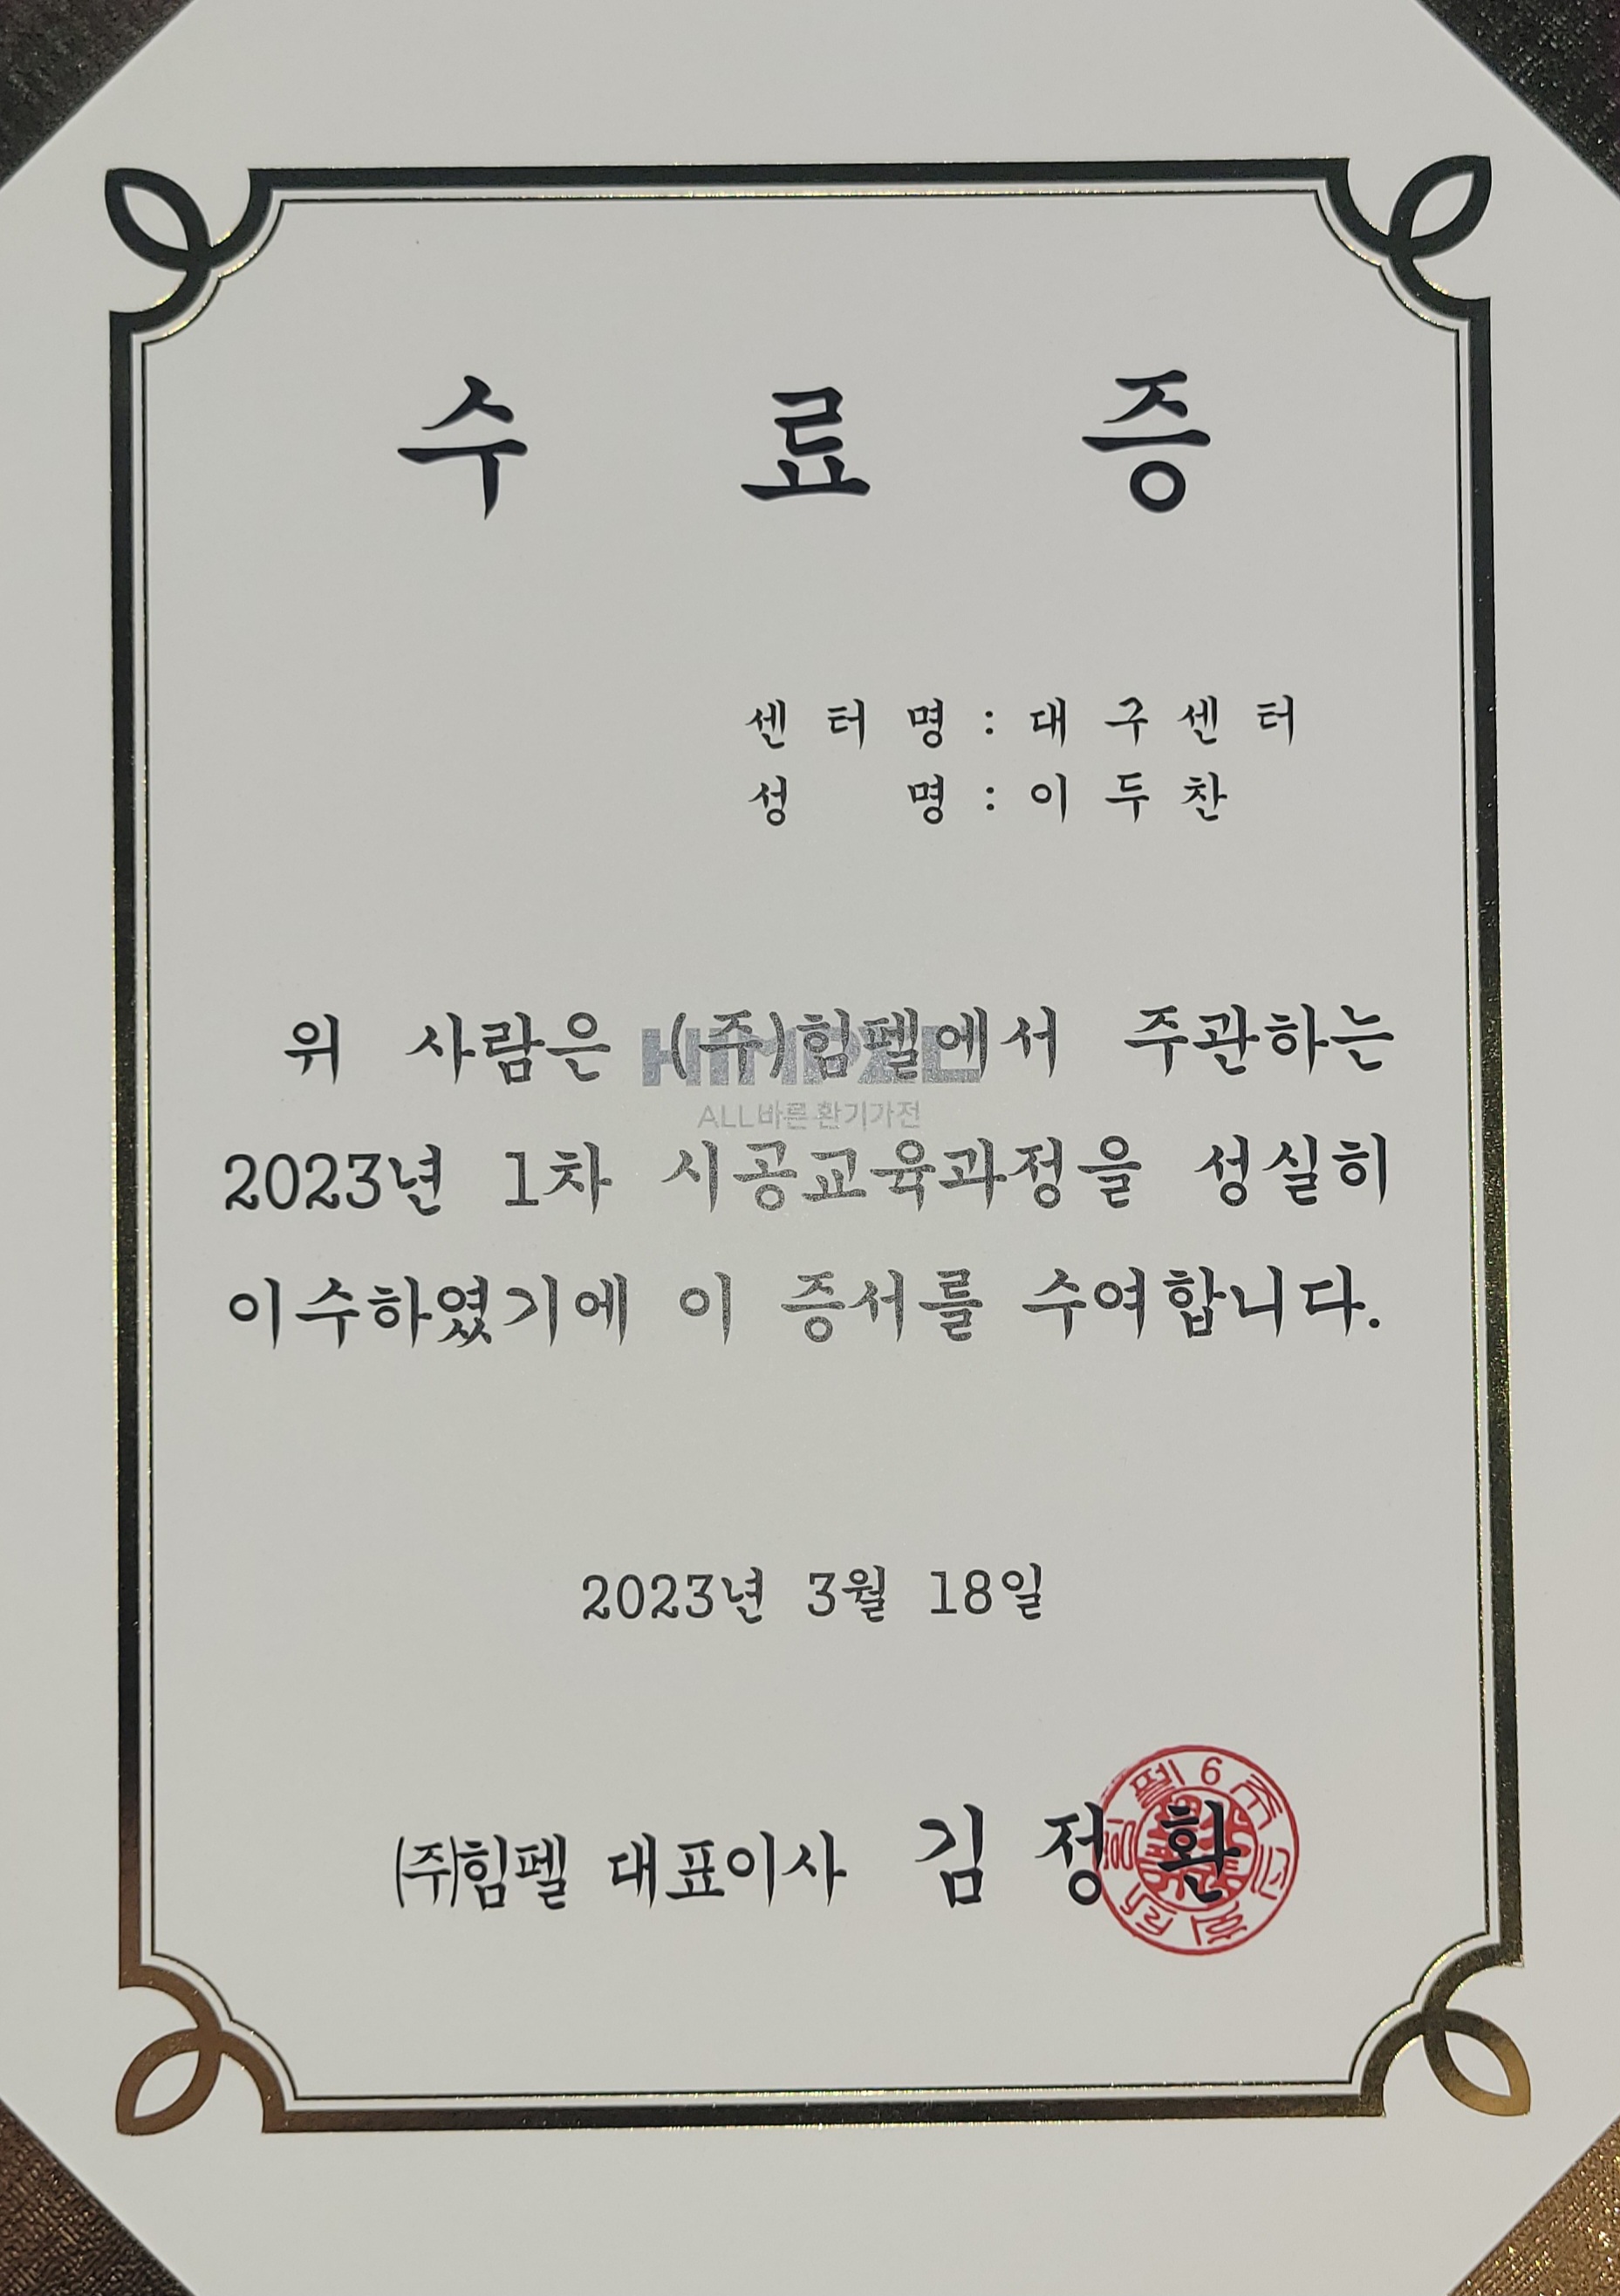 수 료 증
센 터 명 : 대 구 센 터
성 명 : 이 두 찬
위 사람은 (주)힘펠에서 주관하는
HIMPEL
ALL바른 환기가전
2023년 1차 시공교육과정을 성실히
이수하였기에 이 증서를 수여합니다.
2023년 3월 18일
(주)힘펠 대표이사 김 정 환